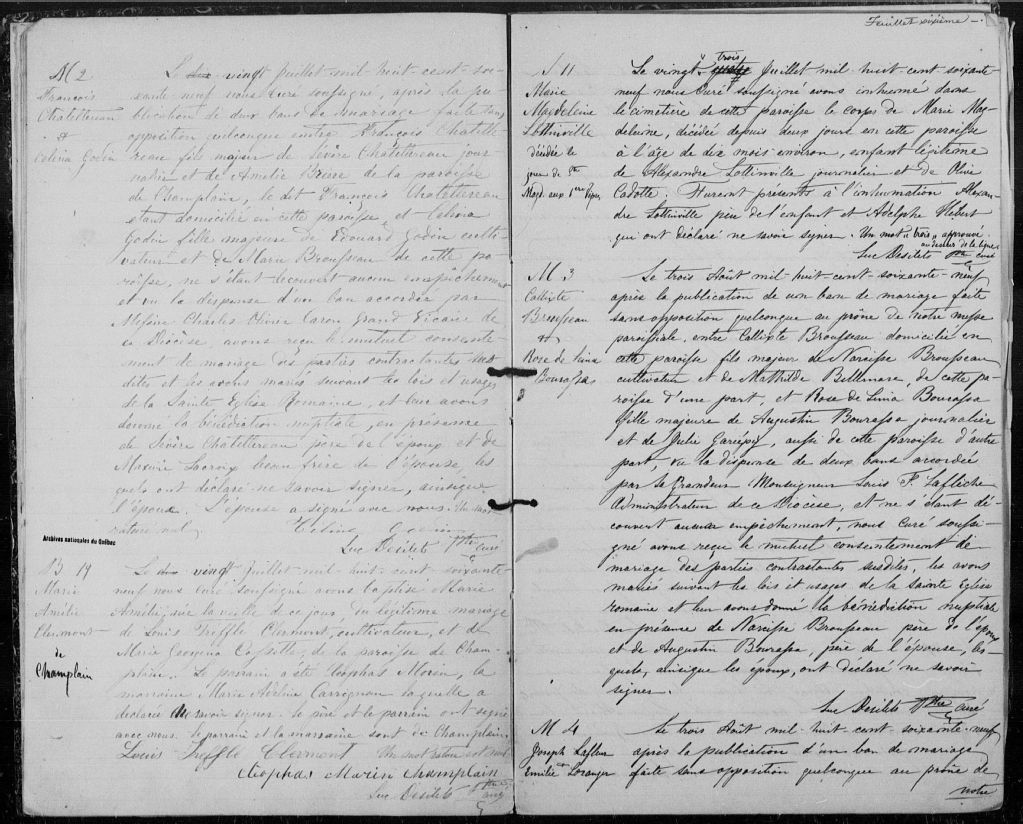 M 2
François
Chatellereau
&
Celina Godin
Le dix vingt Juillet mil huit cent soi-
xante neuf nous Curé soussigné, après la pu-
blication de deux bans de mariage faite sans
opposition quelconque entre François Chatelle-
reau fils majeur de Sévère Châtellereau jour-
nalier et de Amélie Brisse de la paroisse
de Champlain, le dit François Chatellereau
étant domicilié en cette paroisse, et Celina
Godin fille majeure de Edouard Godin culti-
vateur et de Marie Brousseau de cette pa-
roisse, ne s'étant découvert aucun empêchement
et vu la dispense d'un ban accordée par
Messire Charles Olivier Caron Grand Vicaire de
ce Diocèse, avons reçu le mutuel consente-
ment de mariage des parties contractantes sus
dites et les avons mariés suivant les lois et usages
de la Sainte Eglise Romaine, et leur avons
donné la bénédiction nuptiale en présence
de Sévère Châtellereau père de l'époux et de
Maxime Lacroix beau frère de l'épouse, les
quels ont déclaré ne savoir signer, ainsi que
l'époux. L'épouse a signé avec nous. Un mot
raturé nul.
Celina Godin
Luc Desilets Ptre curé
Archives nationales du Québec
B 19
Marie
Amélie
Clermont
de
Champlain
Le dix vingt Juillet mil huit cent soixante
neuf nous Curé soussigné avons baptisé Marie
Amélie, née la veille de ce jour du légitime mariage
de Louis Treffle Clermont, cultivateur, et de
Marie Georgina Cossette, de la paroisse de Cham-
plain. Le parrain a été Cléophas Morin, la
marraine Marie Adeline Carrignan laquelle a
déclaré ne savoir signer. Le père et le parrain ont signé
avec nous. Le parrain et la marraine sont de Champlain.
Louis Treffle Clermont Un mot raturé est nul
Cléophas Morin Champlain
Luc Desilets Ptre
curé
Feuillet sixième
S 11
Marie
Magdeleine
Lottinville
décédée le
jour de Ste
Magd. aux 1ères Vêpres
Le vingt quatre trois Juillet mil huit cent soixante
neuf nous Curé soussigné avons inhumé dans
le cimetière de cette paroisse le corps de Marie Mag-
deleine, décédée depuis deux jours en cette paroisse
à l'âge de dix mois environ, enfant légitime
de Alexandre Lottinville journalier et de Olive
Cadotte. Furent présents à l'inhumation Alexan-
dre Lottinville père de l'enfant et Adolphe Hebert
qui ont déclaré ne savoir signer. Un mot "trois" approuvé
au dessus de la ligne
Luc Desilets Ptre curé
M 3
Callixte
Brousseau
&
Rose de Lima
Bourassa
Le trois Août mil huit cent soixante-neuf
après la publication de un ban de mariage faite
sans opposition quelconque au prône de notre messe
paroissiale, entre Callixte Brousseau domicilié en
cette paroisse fils majeur de Narcisse Brousseau
cultivateur et de Mathilde Bellemare, de cette pa-
roisse d'une part, et Rose de Lima Bourassa
fille majeure de Augustin Bourassa journalier
et de Julie Gariépy, aussi de cette paroisse d'autre
part, vu la dispense de deux bans accordée
par Sa Grandeur Monseigneur Louis F. Laflèche
Administrateur de ce Diocèse, et ne s'étant dé-
couvert aucun empêchement, nous curé soussi-
gné avons reçu le mutuel consentement de
mariage des parties contractantes susdites, les avons
mariés suivant les lois et usages de la Sainte Eglise
romaine et leur avons donné la bénédiction nuptiale
en présence de Narcisse Brousseau père de l'époux
et de Augustin Bourassa, père de l'épouse, les-
quels, ainsi que les époux, ont déclaré ne savoir
signer.
Luc Desilets Ptre curé
M 4
Joseph Lafleur
&
Emilie Loranger
Le trois Août mil huit cent soixante-neuf
après la publication d'un ban de mariage
faite sans opposition quelconque au prône de
notre